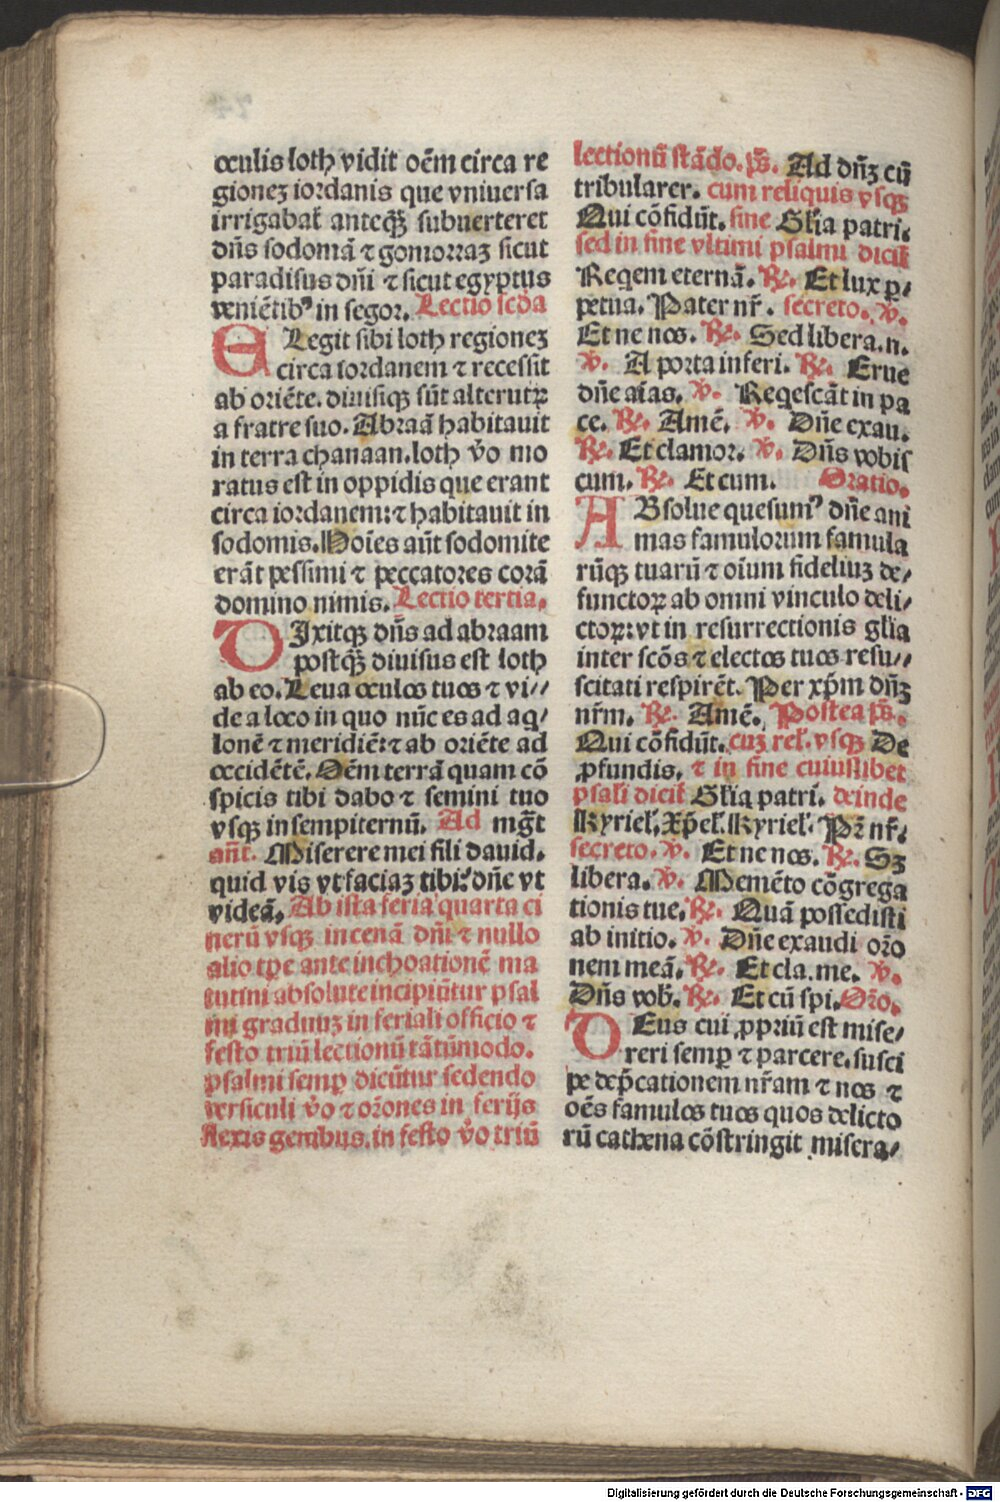 oculis loth vidit oēm circa re
gionez iordanis que vniuersa
irrigabat̄ anteqꝫ̄ subuerteret
dn̄s sodomā ⁊ gomorraz sicut
paradisus dn̄i ⁊ sicut egyptus
veniētibꝰ in segor. Lectio scd̄a
ELegit sibi loth regionez
circa iordanem ⁊ recessit
ab oriēte. diuisiqꝫ sūt alterutrꝝ
a fratre suo. Abraā habitauit
in terra chanaan. loth v̄o mo
ratus est in oppidis que erant
circa iordanem: ⁊ habitauit in
sodomis. Hoīes aūt sodomite
erāt pessimi ⁊ peccatores corā
domino nimis. Lectio tertia.
DIxitqꝫ dn̄s ad abraam
postqꝫ̄ diuisus est loth
ab eo. Leua oculos tuos ⁊ vi//
de a loco in quo nūc es ad aq/
lonē ⁊ meridiē: ⁊ ab oriēte ad
occidētē. Oēm terrā quam cō
spicis tibi dabo ⁊ semini tuo
vsqꝫ in sempiternū. Ad mḡt
an̄t. Miserere mei fili dauid.
quid vis vt faciaz tibi: dn̄e vt
videā. Ab ista feria quarta ci
nerū vsqꝫ in cenā dn̄i ⁊ nullo
alio tꝑe ante inchoationē ma
tutini absolute incipiūtur psal
mi graduuz in feriali officio ⁊
festo triū lectionū tātūmodo.
psalmi semꝑ dicūtur sedendo
versiculi v̄o ⁊ or̄ones in ferijs
flexis genibus. in festo v̄o triū
lectionū stādo. ps̄. Ad dn̄ꝫ cū
tribularer. cum reliquis vsqꝫ
Qui cōfidūt. sine Gl̄ia patri.
sed in fine vltimi psalmi dicit̄
Reqem eternā. ℟. Et lux ꝑ/
petua. Pater nr̄. secreto. ℣.
Et ne nos. ℟. Sed libera. n.
℣. A porta inferi. ℟. Erue
dn̄e aīas. ℣. Reqescāt in pa
ce. ℟. Amē. ℣. Dn̄e exau.
℟. Et clamor. ℣. Dn̄s vobis
cum. ℟. Et cum. Oratio.
ABsolue quesumꝰ dn̄e ani
mas famulorum famula
rūqꝫ tuarū ⁊ oīum fideliuz de/
functoꝝ ab omni vinculo deli/
ctoꝝ: vt in resurrectionis gl̄ia
inter scōs ⁊ electos tuos resu//
scitati respirēt. Per xp̄m dn̄ꝫ
nr̄m. ℟. Amē. Postea ps̄.
Qui cōfidūt. cuz rel̄. vsqꝫ De
ꝓfundis. ⁊ in fine cuiuslibet
psal̄i dicit̄ Gl̄ia patri. deinde
Kyriel̄. Xp̄el̄. Kyriel̄. Pr̄ nr̄.
secreto. ℣. Et ne nos. ℟. Sꝫ
libera. ℣. Memēto cōgrega
tionis tue. ℟. Quā possedisti
ab initio. ℣. Dn̄e exaudi or̄o
nem meā. ℟. Et cla. me. ℣.
Dn̄s vob̄. ℟. Et cū spi. Or̄o.
DEus cui ꝓpriū est mise/
reri semꝑ ⁊ parcere. susci
pe dep̄cationem nr̄am ⁊ nos ⁊
oēs famulos tuos quos delicto
rū cathena cōstringit misera/
Digitalisierung gefördert durch die Deutsche Forschungsgemeinschaft - DFG